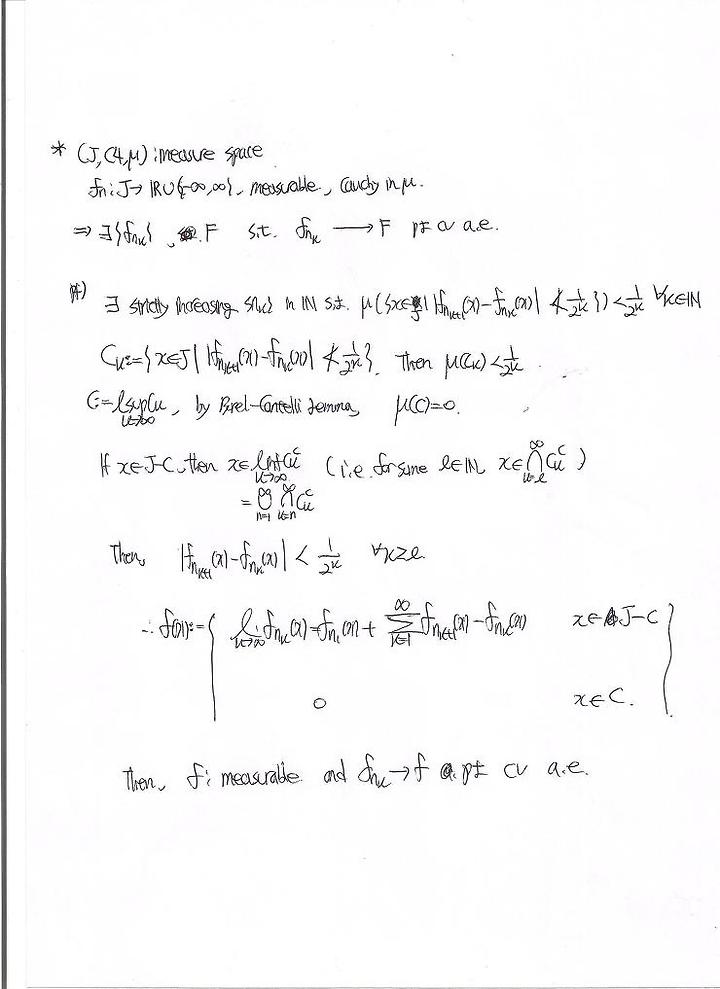 * (J, 𝒜, μ) : measure space
fn : J → ℝ∪{-∞,∞}, measurable, Cauchy in μ.
⇒ ∃{f_{n_k}}, F s.t. f_{n_k} ⟶ F pt cv a.e.
pf) ∃ strictly increasing {n_k} in ℕ s.t. μ({x∈J | |f_{n_{k+1}}(x)-f_{n_k}(x)| ≮ 1/2^k}) < 1/2^k ∀k∈ℕ
C_k := {x∈J | |f_{n_{k+1}}(x)-f_{n_k}(x)| ≮ 1/2^k}. Then μ(C_k) < 1/2^k
C = lsup_{k→∞} C_k, by Borel-Cantelli lemma, μ(C)=0.
If x∈J-C, then x∈ linf_{k→∞} C_k^c (i.e. for some l∈ℕ, x∈ ⋂_{k=l}^∞ C_k^c)
= ⋃_{n=1}^∞ ⋂_{k=n}^∞ C_k^c
Then, |f_{n_{k+1}}(x)-f_{n_k}(x)| < 1/2^k ∀k≥l
∴ f(x) := { l_{k→∞} f_{n_k}(x) = f_{n_1}(x) + ∑_{k=1}^∞ f_{n_{k+1}}(x) - f_{n_k}(x) x∈J-C }
0 x∈C.
Then, f : measurable and f_{n_k} → f pt cv a.e.